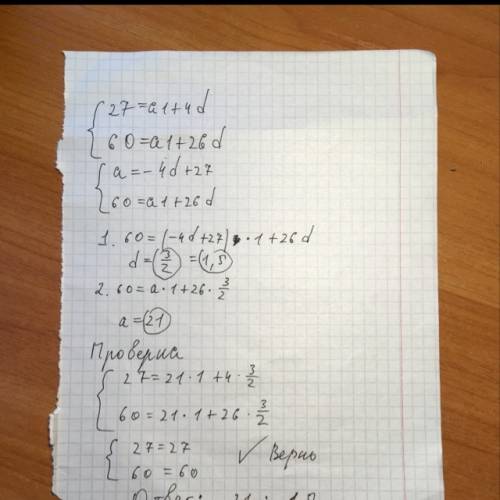 27=a1+4d
60=a1+26d
a=-4d+27
60=a1+26d
1. 60=(-4d+27)·1+26d
d=3/2=1,5
2. 60=a·1+26·3/2
a=21
Проверка
27=21·1+4·3/2
60=21·1+26·3/2
27=27
60=60
✓ Верно